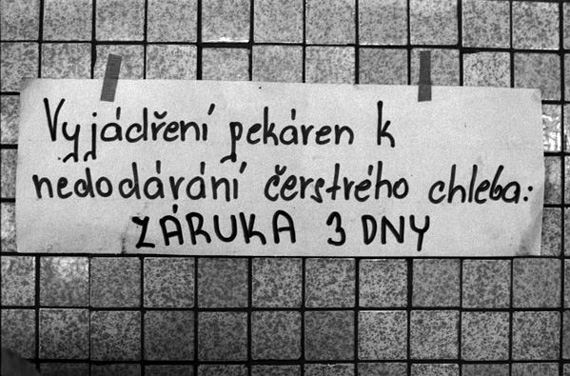 Vyjádření pekáren k
nedodávání čerstvého chleba:
ZÁRUKA 3 DNY